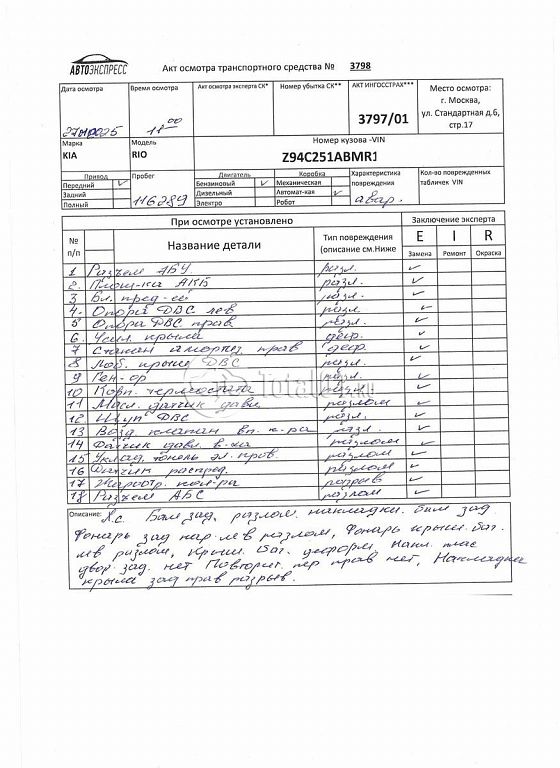 АВТОЭКСПРЕСС
Акт осмотра транспортного средства № 3798
Дата осмотра Время осмотра Акт осмотра эксперта СК* Номер убытка СК** АКТ ИНГОССТРАХ*** Место осмотра:
г. Москва,
ул. Стандартная д.6,
стр.17
11 00 3797/01
Марка Модель Номер кузова -VIN
KIA RIO Z94C251ABMR1
Привод Пробег Двигатель Коробка Характеристика повреждения Кол-во поврежденных табличек VIN
Передний ✓ Бензиновый ✓ Механическая
Задний 116289 Дизельный Автомат-кая ✓ авар.
Полный Электро Робот
При осмотре установлено Заключение эксперта
№ п/п Название детали Тип повреждения (описание см.Ниже E I R
Замена Ремонт Окраска
1 Разъем АБУ разл. ✓
2. Площ-ка АКБ разл. ✓
3 Бл. пред-ей разл. ✓
4. Опора ДВС лев разл. ✓
5 Опора ДВС прав. разл. ✓
6. Усил. крыла деф. ✓
7 Стакан амортиз прав деф. ✓
8 крыш ДВС разл. ✓
9 Ген-ор разл. ✓
10 Корп. термостата разл. ✓
11 Масл. датчик давл. разлом ✓
12 Щуп ДВС разл. ✓
13 Возд клапан вп. к-ра разл. ✓
14 Датчик давл. в-ха разлом ✓
15 Уклад. тонель эл. пров. разлом ✓
16 Датчик распред. разлом ✓
17 кол-ра разрыв ✓
18 Разъем АБС разлом ✓
Описание: Х.с. Бам зад. разлом. накладки. бам зад
Фонарь зад нар. лев разлом, Фонарь крыш. баг.
лев разлом, Крыш. баг. деформ, Накл. плас
двор. зад. нет Повторит. пер прав нет, Накладка
крыла зад прав разрыв.